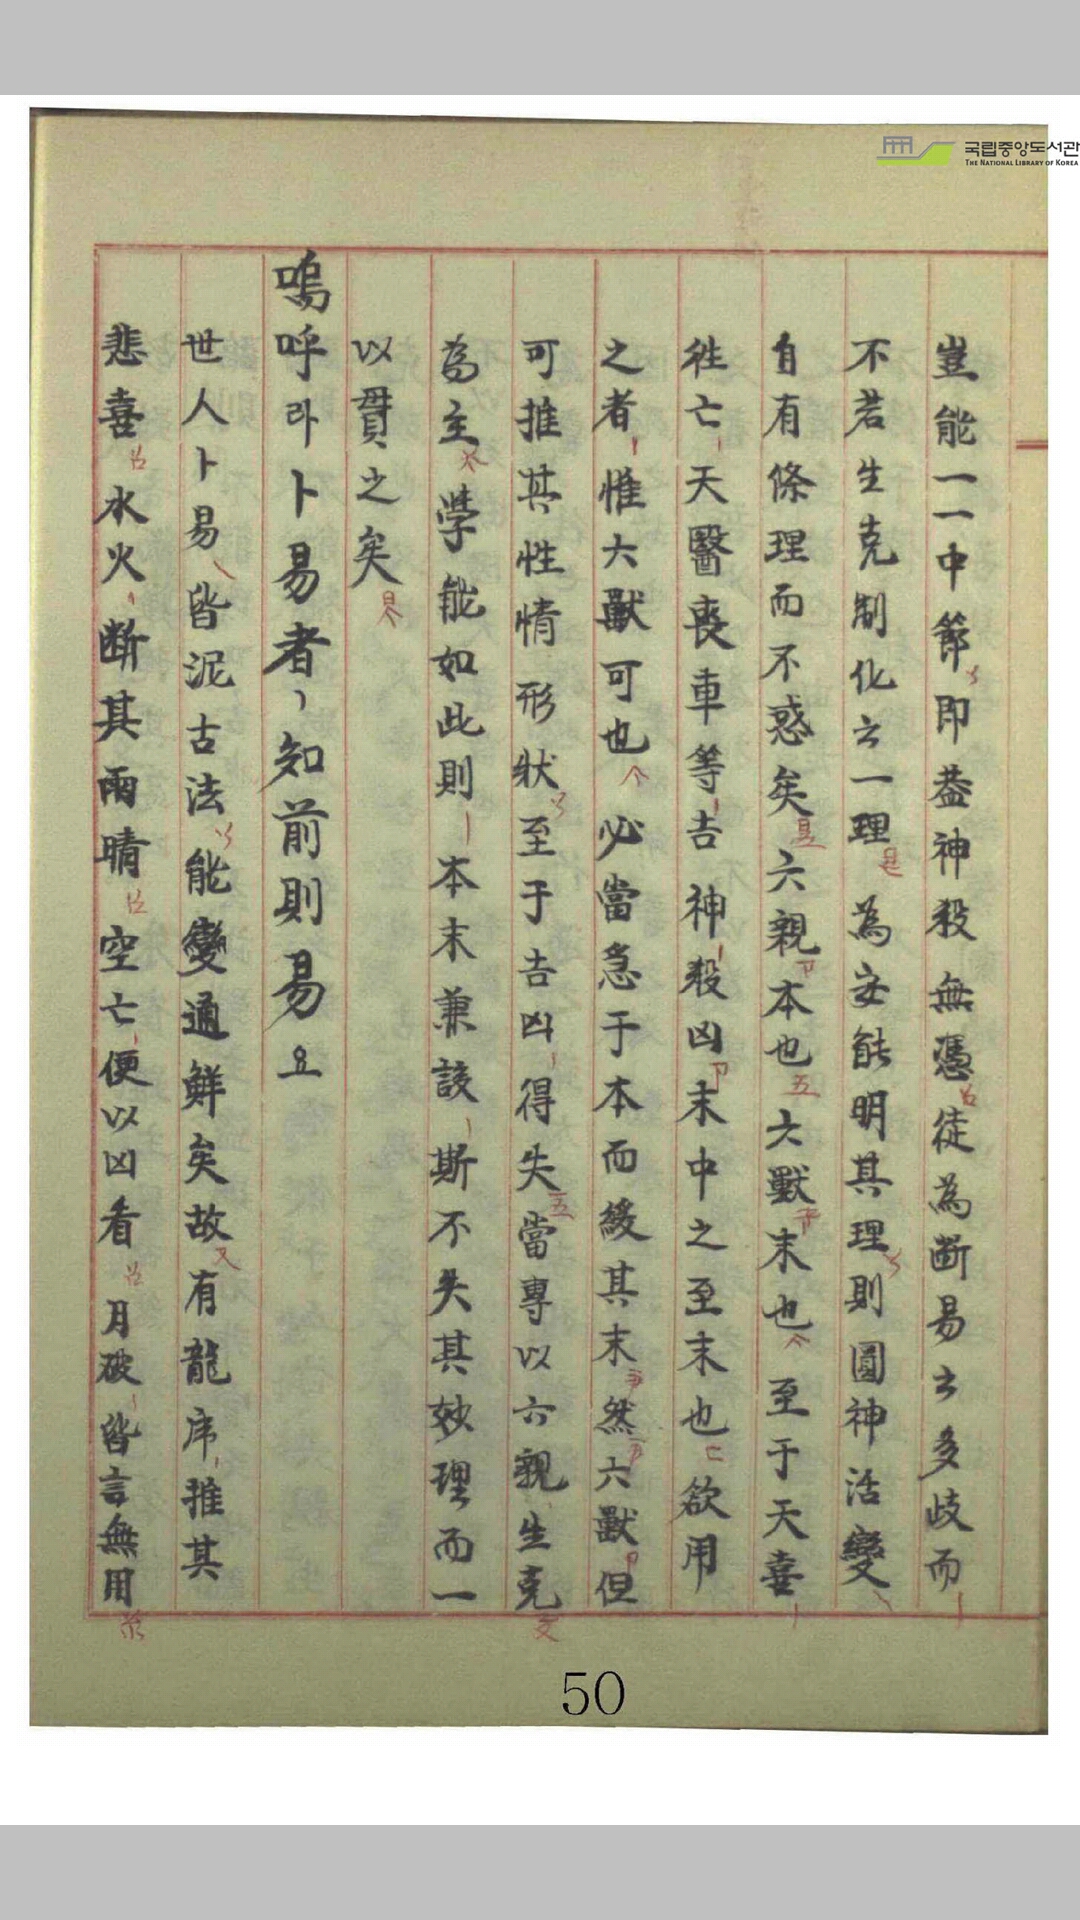 국립중앙도서관
THE NATIONAL LIBRARY OF KOREA
豈能一一中節即盖神殺無憑徒為断易之多歧而
不若生克制化之一理為安能明其理則圓神活變
自有條理而不惑矣六親本也六獸末也至于天喜
徃亡天醫喪車等吉神殺凶末中之至末也欲用
之者惟六獸可也必當急于本而緩其末然六獸但
可推其性情形狀至于吉凶得失當專以六親生克
為主學能如此則本末兼該斯不失其妙理而一
以貫之矣
嗚呼라卜易者、知前則易요
世人卜易皆泥古法能變通鮮矣故有龍虎推其
悲喜水火断其雨晴空亡便以凶看月破皆言無用
50